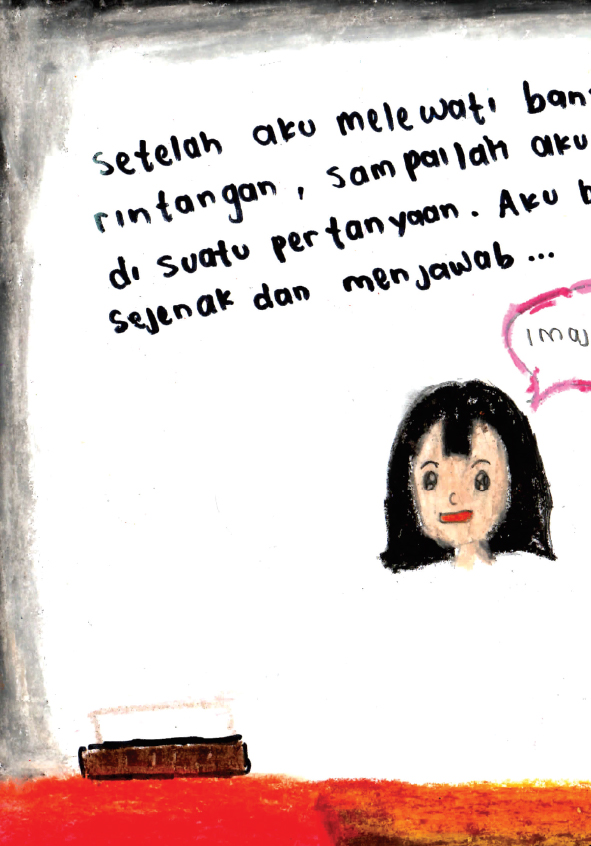 Setelah aku melewati
rintangan, sampailah aku
di suatu pertanyaan. Aku
sejenak dan menjawab...